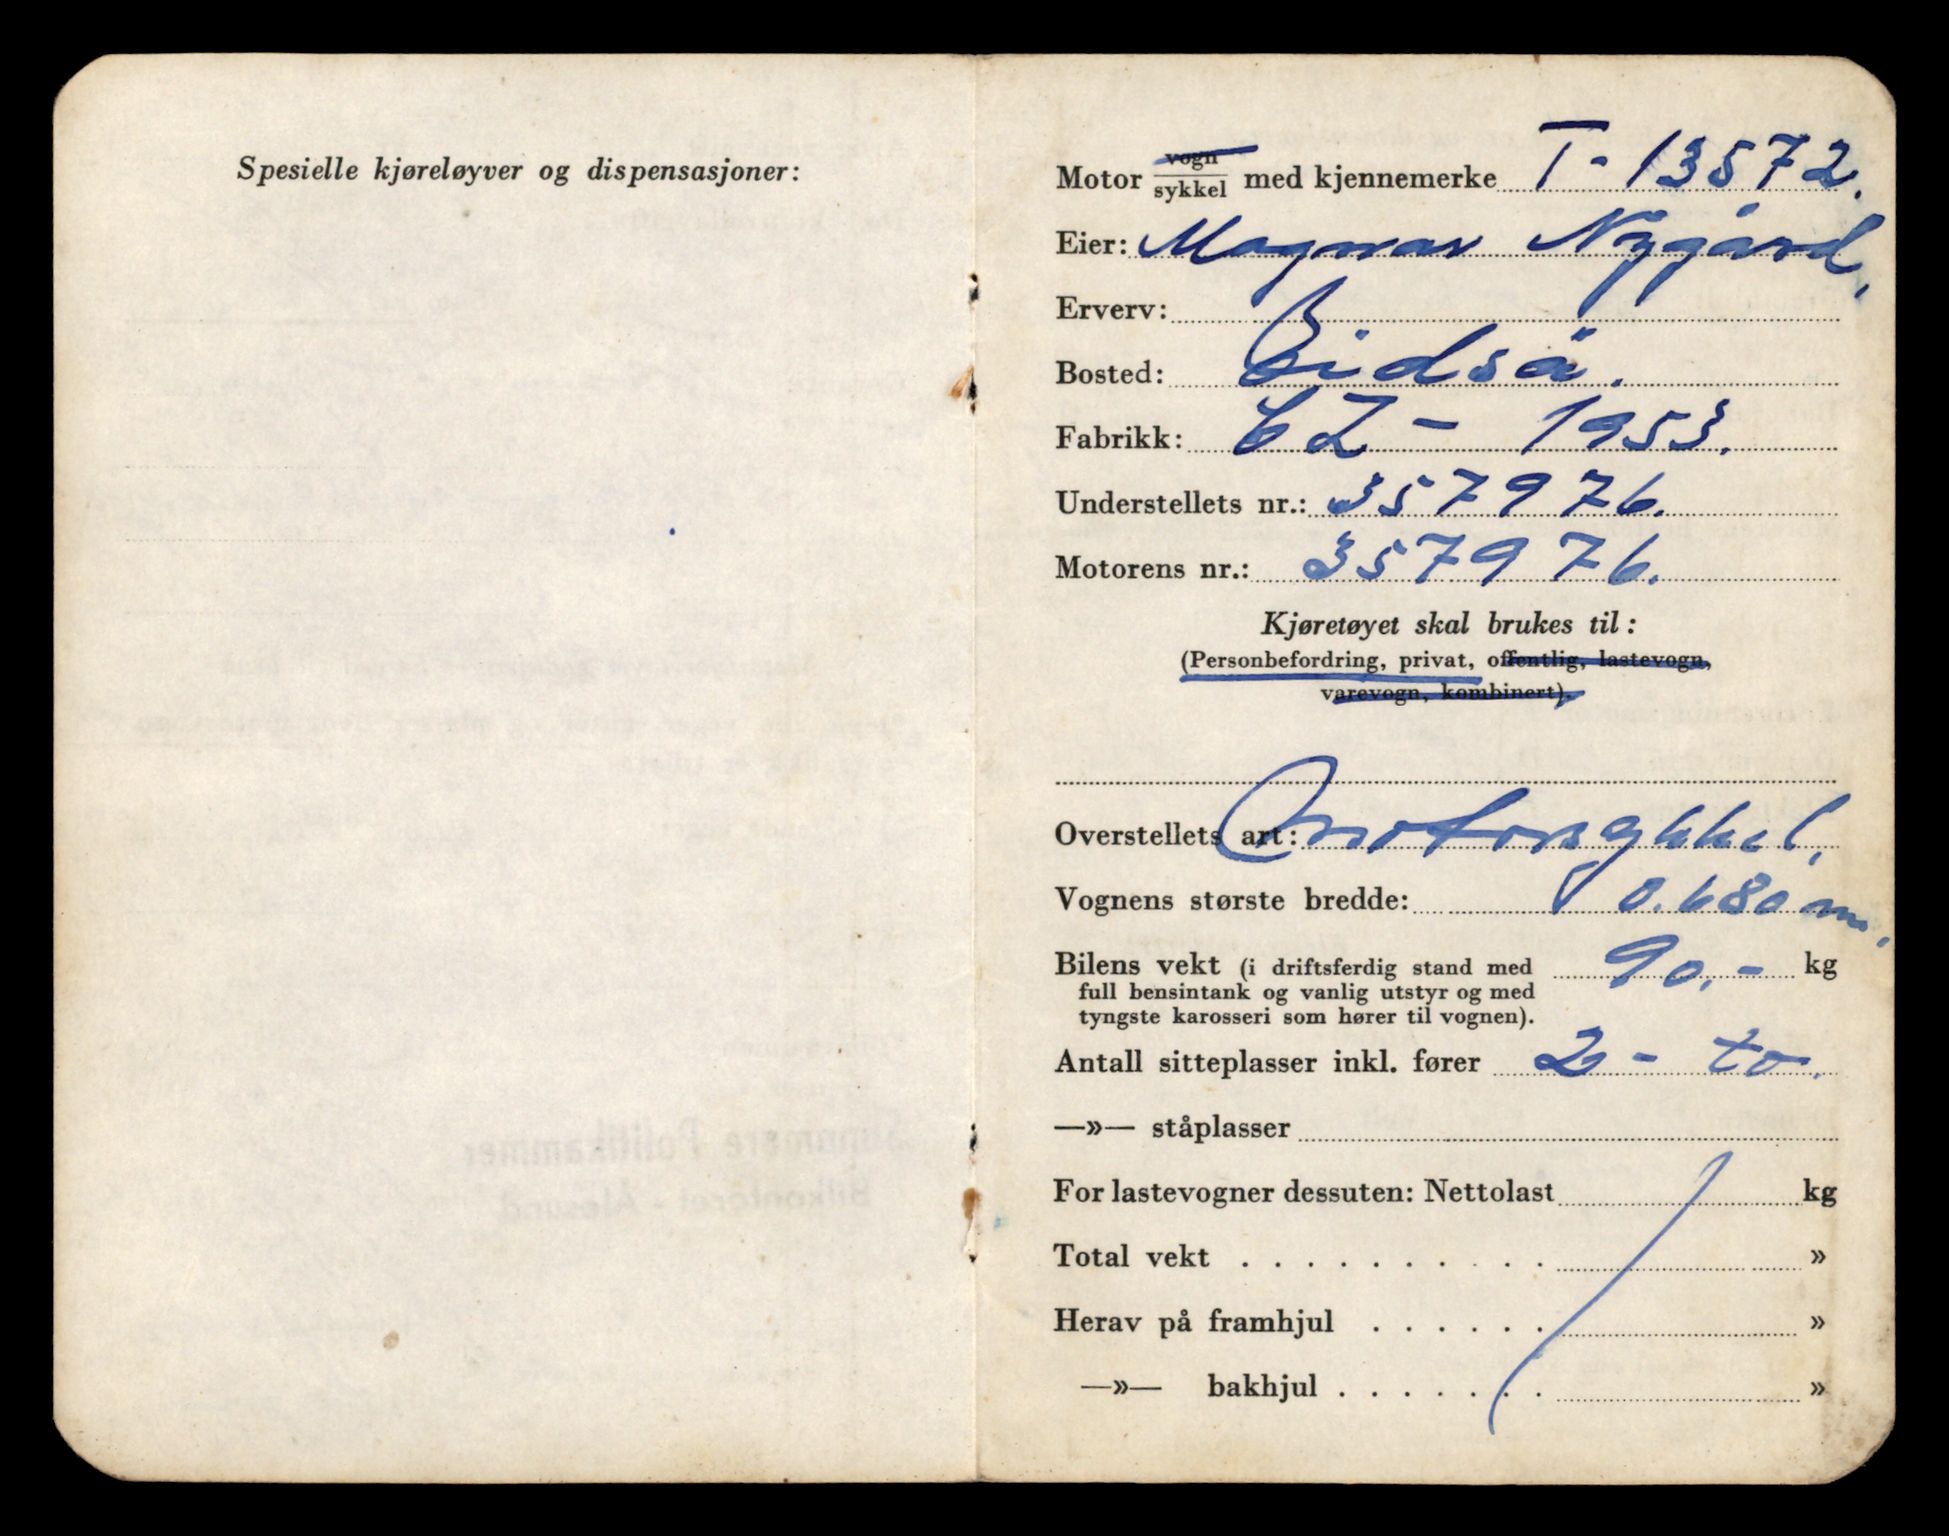 Spesielle kjøreløyver og dispensasjoner:
Motor vogn/sykkel med kjennemerke T-13572.
Eier: Magnar Nygård,
Erverv:
Bosted: Eidså.
Fabrikk: CZ - 1953.
Understellets nr.: 357976.
Motorens nr.: 357976.
Kjøretøyet skal brukes til:
(Personbefordring, privat, offentlig, lastevogn,
varevogn, kombinert).
Overstellets art: Motorsykkel,
Vognens største bredde: 0.680 m,
Bilens vekt (i driftsferdig stand med 90,- kg
full bensintank og vanlig utstyr og med
tyngste karosseri som hører til vognen).
Antall sitteplasser inkl. fører 2 - to.
—»— ståplasser
For lastevogner dessuten: Nettolast kg
Total vekt . . . . . . . . . . »
Herav på framhjul . . . . . . »
—»— bakhjul . . . . . . . »